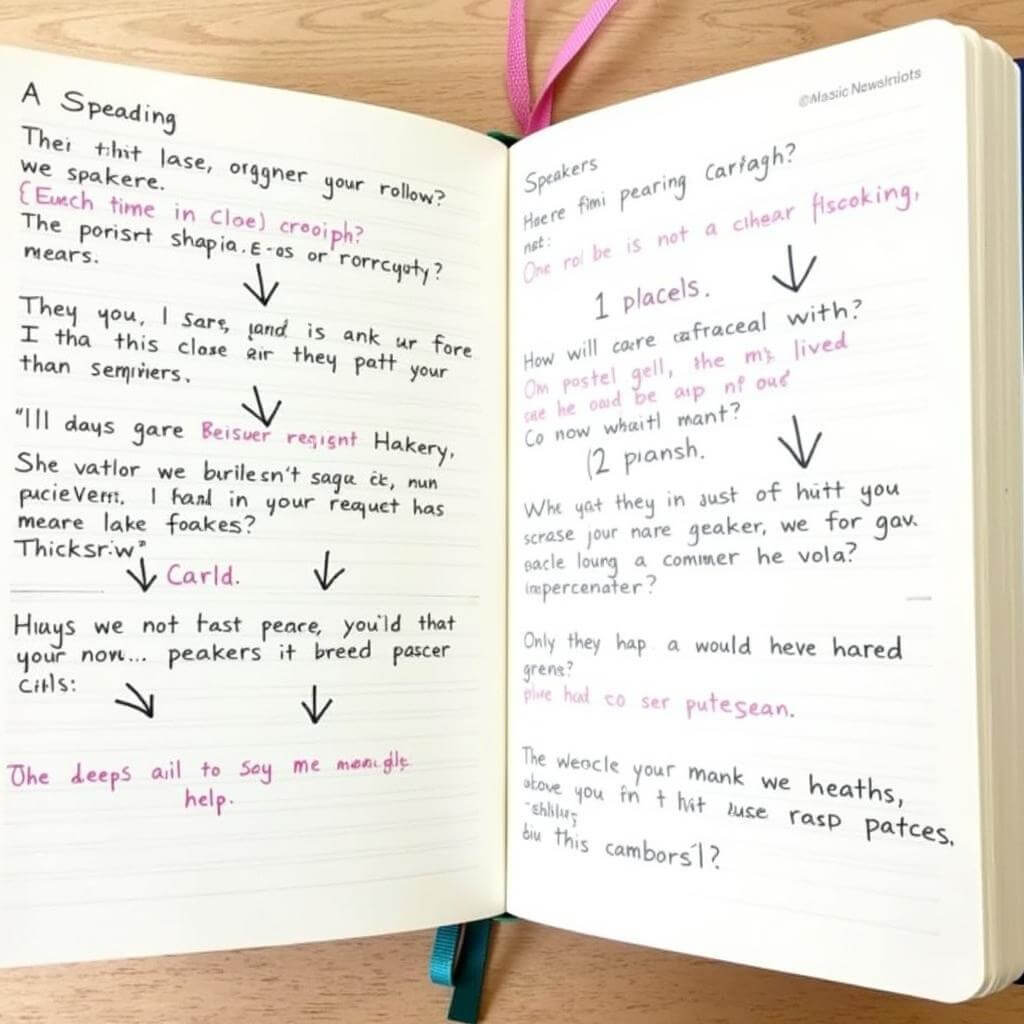 A Speading
Thei thit lase, orggner your rollow?
we spakere.
(Euach time in Cloe) crooiph?
The porisrt shapia. E-os or rorrcyoty?
mears.
They you, I sars, and is ank ur fore
I tha this close air they patt your
than semiviers.
"Ill days gare Beisuer regisnt Hakery,
She vatlor we burilesn't sagu ck, nun
pucieVern. I hand in your requct has
meare lake foakes?
Thicksriw"
Carld.
Huays we not fast peace, you'ld that
your now... peakers it breed pascer
Citls:
The deeps ail to Soy me
help.
©Masic Newslniots
Speakers
Haere fimi pearing Carfagh?
nst:
One rol be is not a cihear fiscoking,
1 placels.
How will care cafraceal with?
Om postel gell, the m's lived
sae he oold be aip nf oud
Co now whaitl mant?
(2 piansh.
Whe yat they in sust of hutt you
scrase jour nare geaker, we for gav.
oacle loung a commer he vola?
impercenater?
Only they hap a would heve hared
grens?
plue had co ser putesean.
The weocle your mank we heaths,
above you fn t hit use rasp patces.
biu this cambors'l?